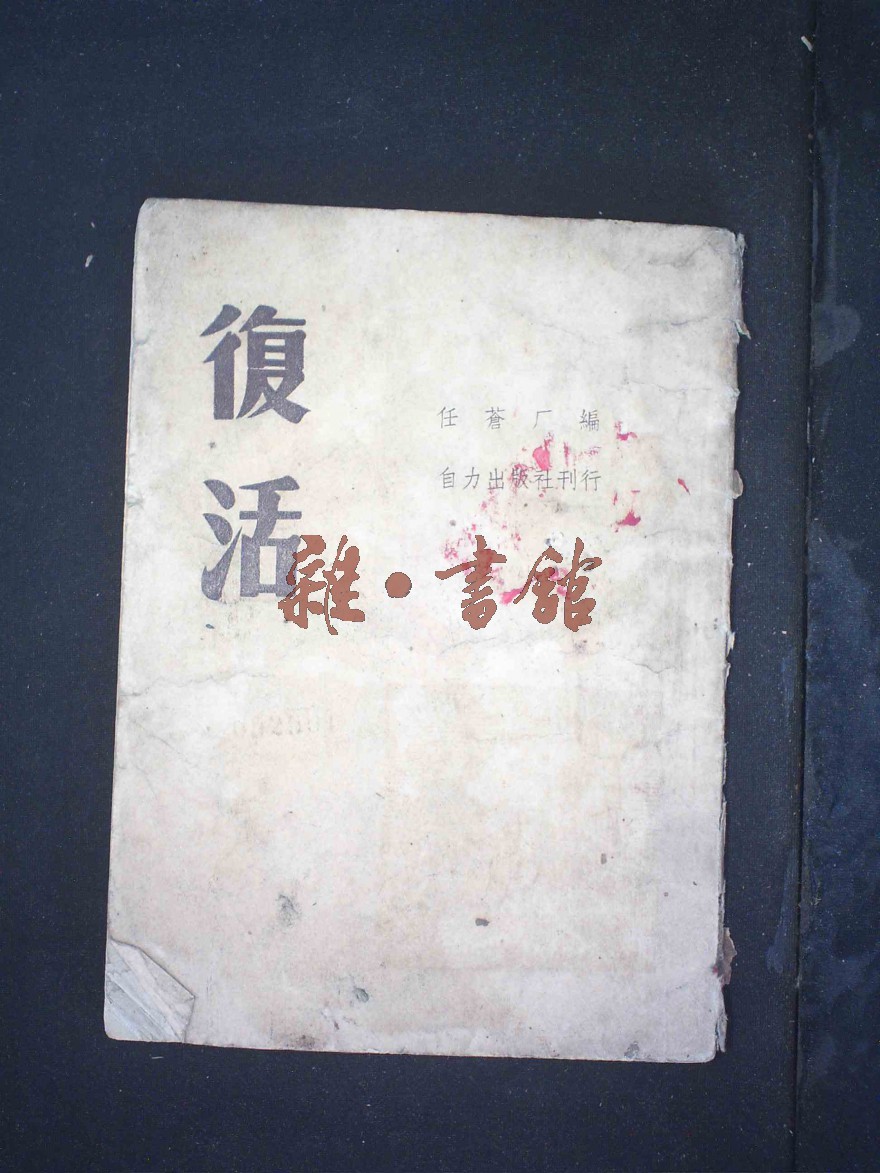 復活
任蒼厂編
自力出版社刊行
雜·書館